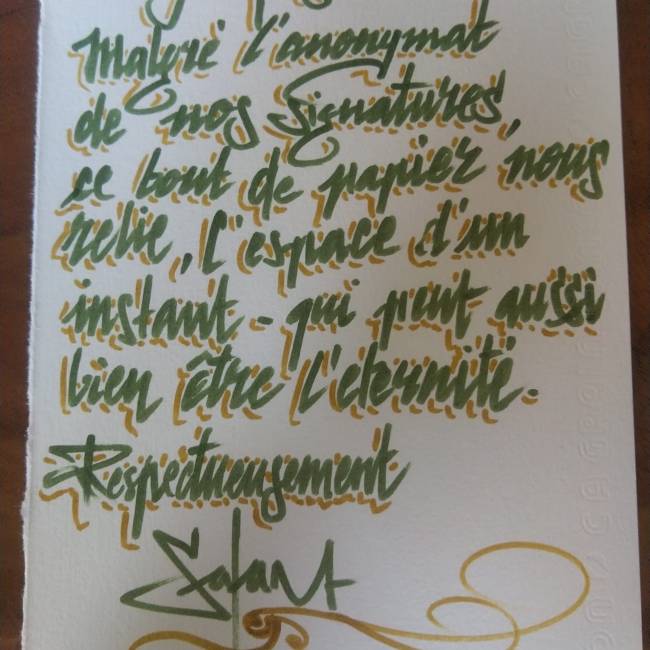 Malgré l'anonymat
de nos signatures,
ce bout de papier nous
relie, l'espace d'un
instant - qui peut aussi
bien être l'éternité.
Respectueusement